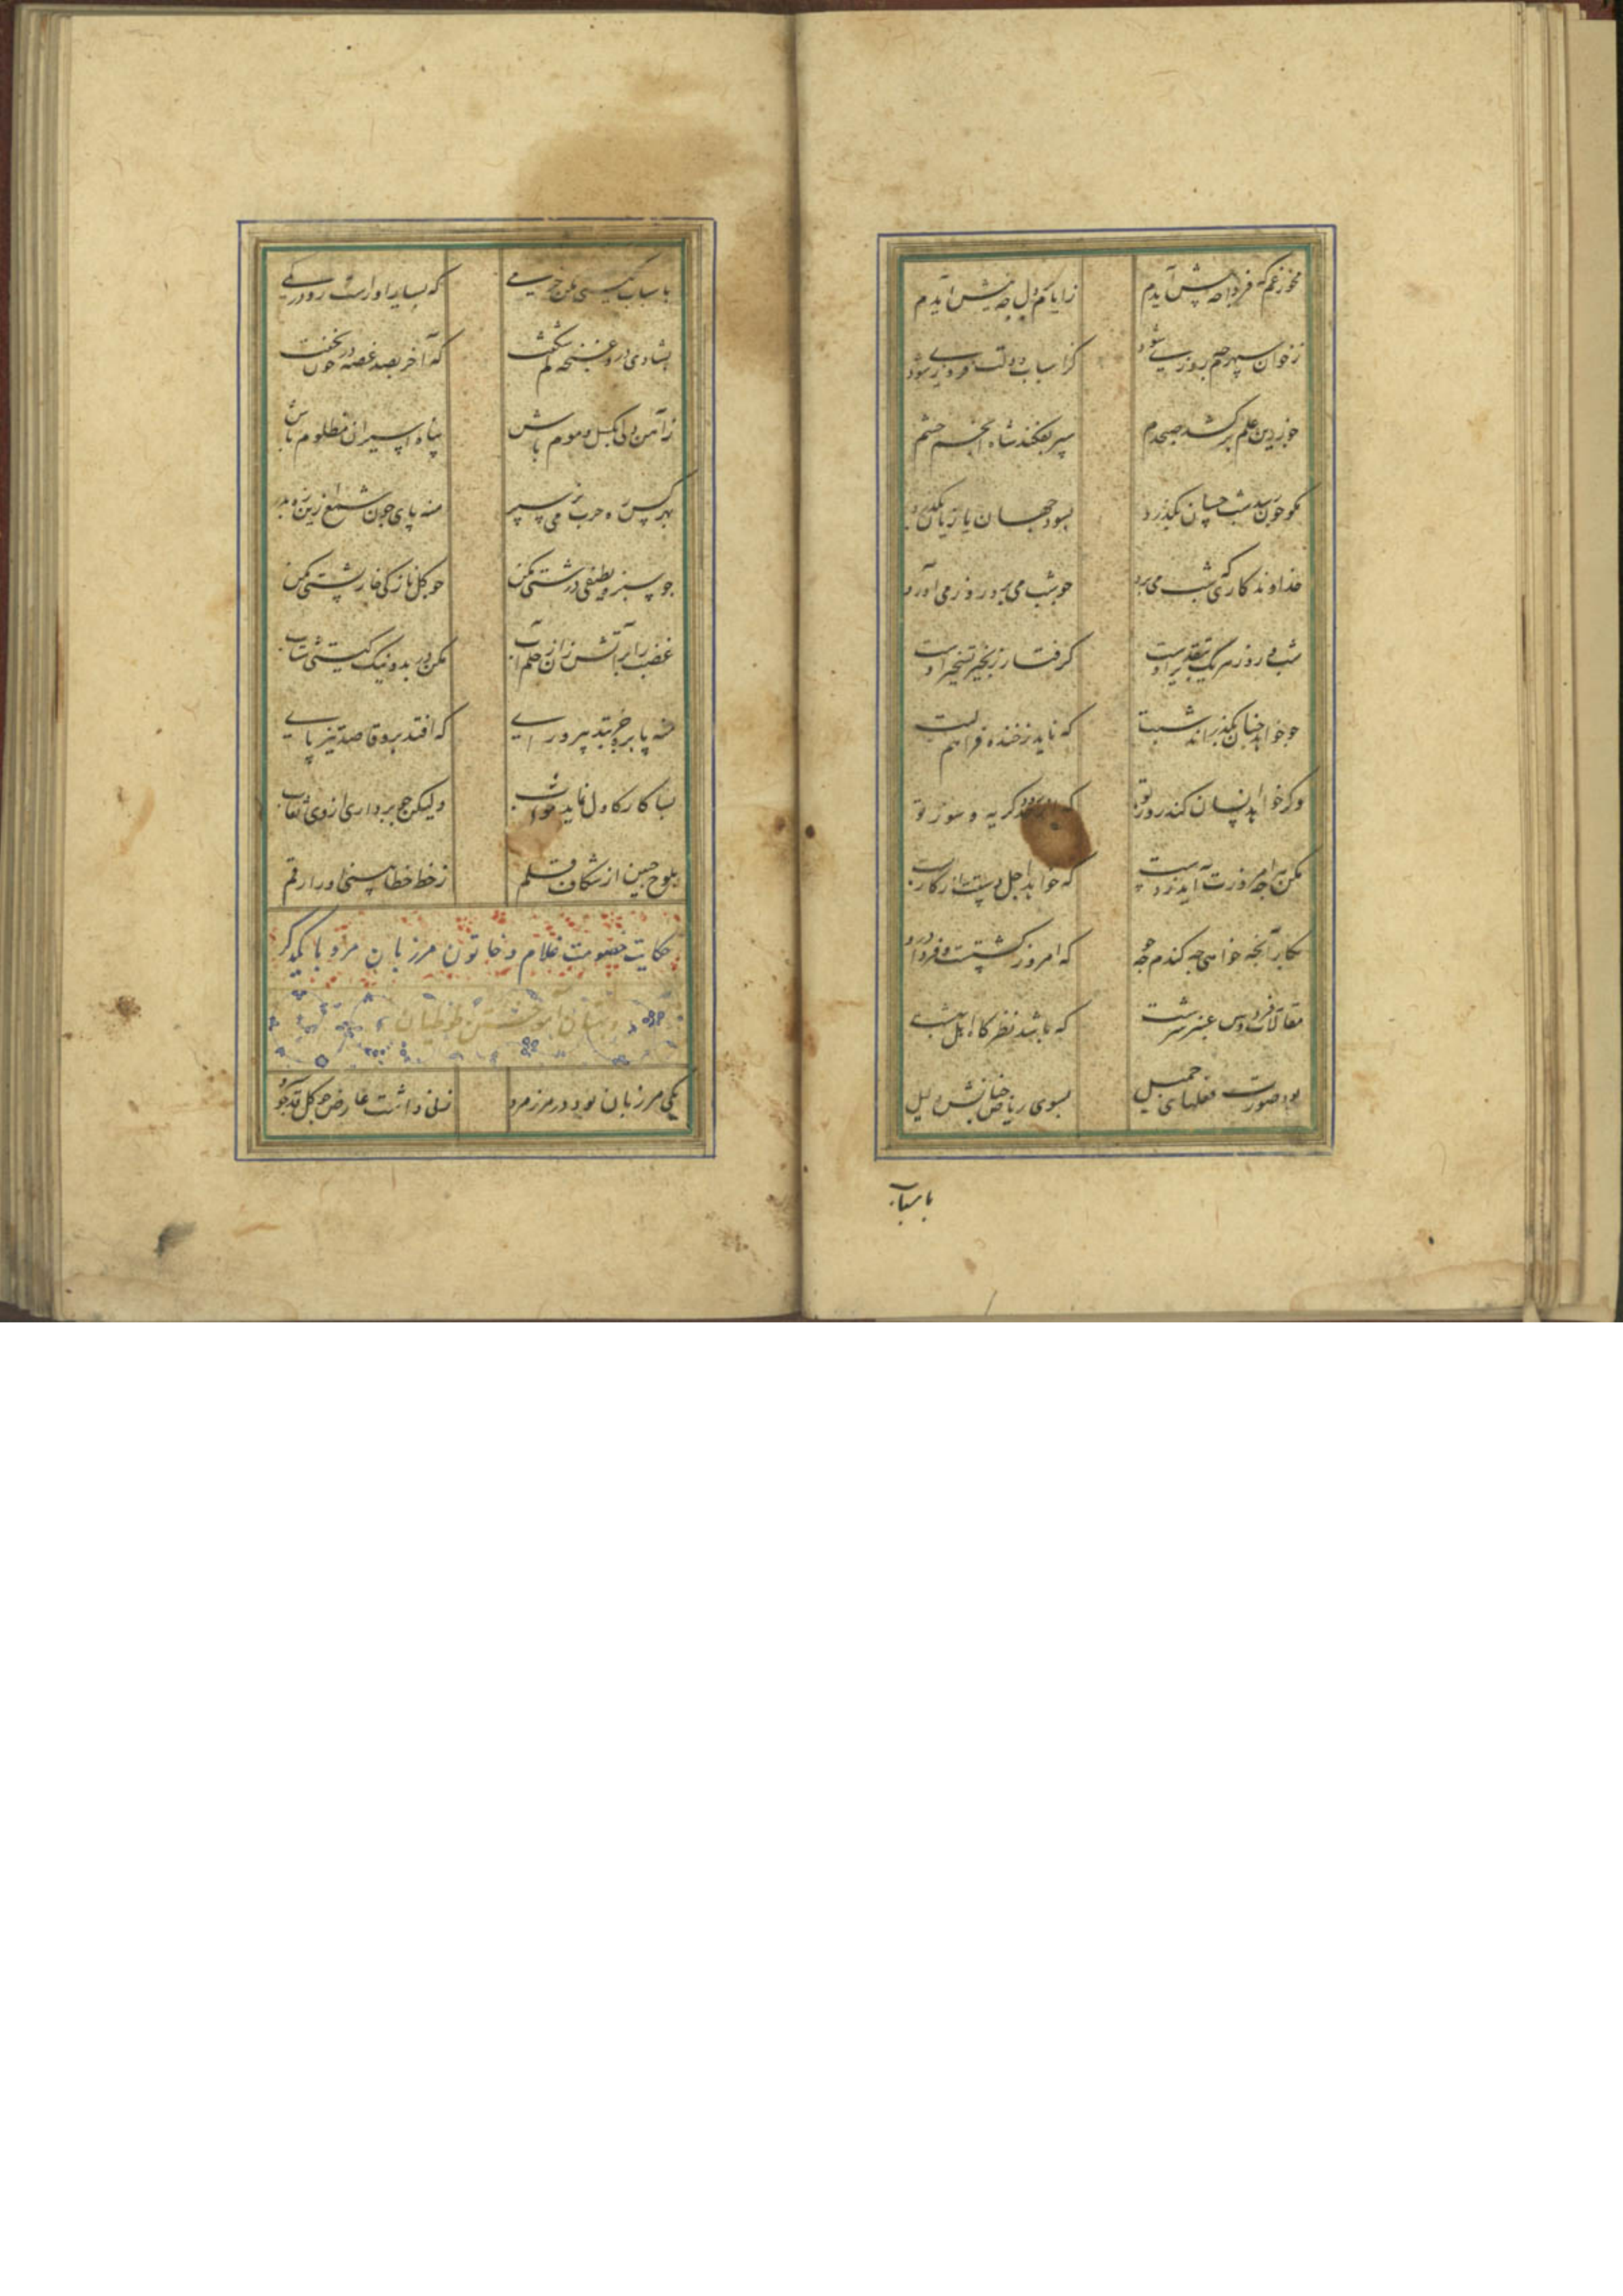 مخور غم که فردا چه پیش آیدم ز ایام بر دل چه نیش آیدم
ز خوان سپهرم چه روزی شود کز اسباب دولت فروزی شود
چو زرین علم برکشد صبحدم سپر بفکند شاه انجم حشم
مگو چون رسد شب چسان بگذرد بسود جهان یا زیان بگذرد
خداوندگاری که شب می برد چو شب می برد روز می آورد
شب و روز سر یک بتقدیر اوست گرفتار زنجیر تسخیر اوست
چو خواهد چنان بگذراند شبت که ناید ز خنده فراهم لبت
وگر خواهد انسان کند روز تو که گریه و سوز تو
مکن هر چه امروزت آید ز دست که خواهد اجل دست از کار بست
بکار آنچه خواهی چه گندم چه جو که امروز کشتست و فردا درو
مقالات فردوس عنبر سرشت که باشد نظرگاه اهل بهشت
بود صورت فعلهای جمیل بسوی ریاض جنانش دلیل
باسباب
باسباب گیتی مکن خرمی که بسیار او راست رو در کمی
بشادی درو غنچه کم شکفت که آخر بصد غصه در خون نخفت
ز آهن دلی بگسل و موم باش پناه اسیران مظلوم باش
بهر کس ره حرب می سپر منه پای چون تیغ زین ره بدر
چو سبزه بطنفی درشتی مکن چو گل نازکی خارپشتی مکن
غضب را بر آتش زن از حلم آب مکن در بد و نیک گیتی شتاب
منه پا برو جز بتدبیر و رای که افتد برو قاصد تیز پای
بسا کار کاول نماید صواب ولیکن چو برداری از وی نقاب
بلوح جبین از شکاف قلم ز خط خطا بینی او را رقم
حکایت خصومت غلام و خاتون مرزبان مرو با یکدگر
و بستان آموختن طوطیان
یکی مرزبان بود در مرز مرو زنی داشت عارض چو گل قد چو